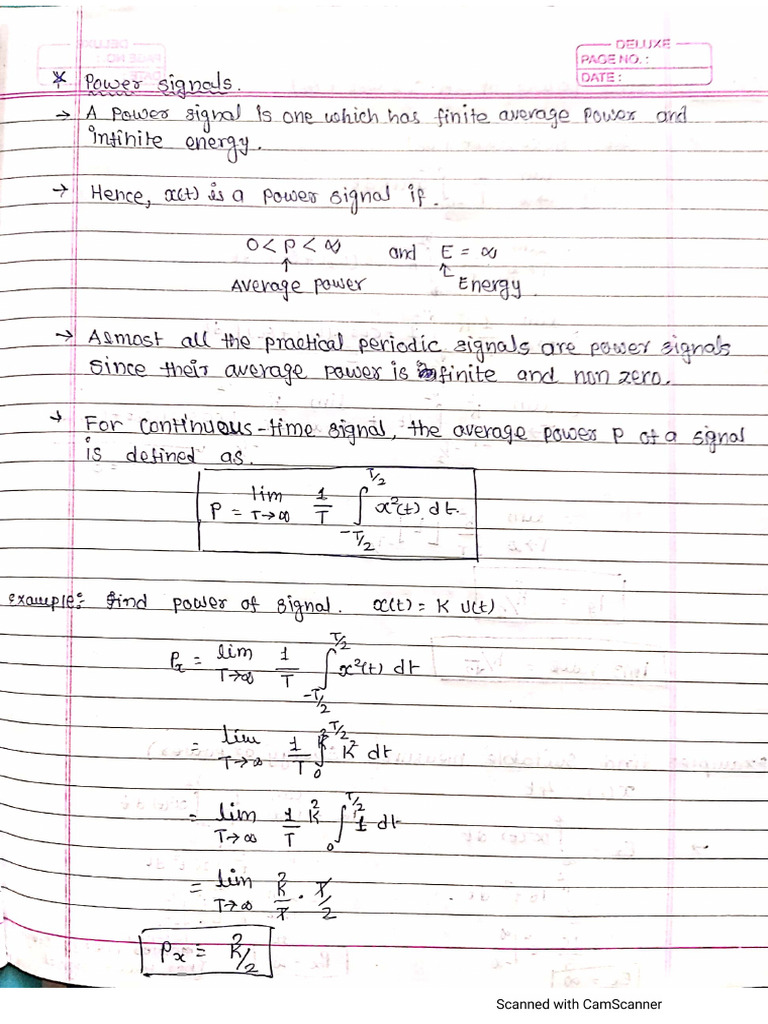 DELUXE
PAGE NO. :
DATE :
* Power signals.
→ A power signal is one which has finite average power and
infinite energy.
→ Hence, x(t) is a power signal if.
0 < P < ∞ and E = ∞
↑ ↑
Average power Energy
→ Almost all the practical periodic signals are power signals
since their average power is finite and non zero.
→ For continuous-time signal, the average power P of a signal
is defined as.
P = lim T→∞ 1/T ∫_{-T/2}^{T/2} x²(t) dt.
example: find power of signal. x(t) = K u(t).
Px = lim T→∞ 1/T ∫_{-T/2}^{T/2} x²(t) dt
= lim T→∞ 1/T ∫_0^{T/2} K² dt
= lim T→∞ 1/T K² ∫_0^{T/2} 1 dt
= lim T→∞ K²/T · T/2
Px = K²/2
Scanned with CamScanner